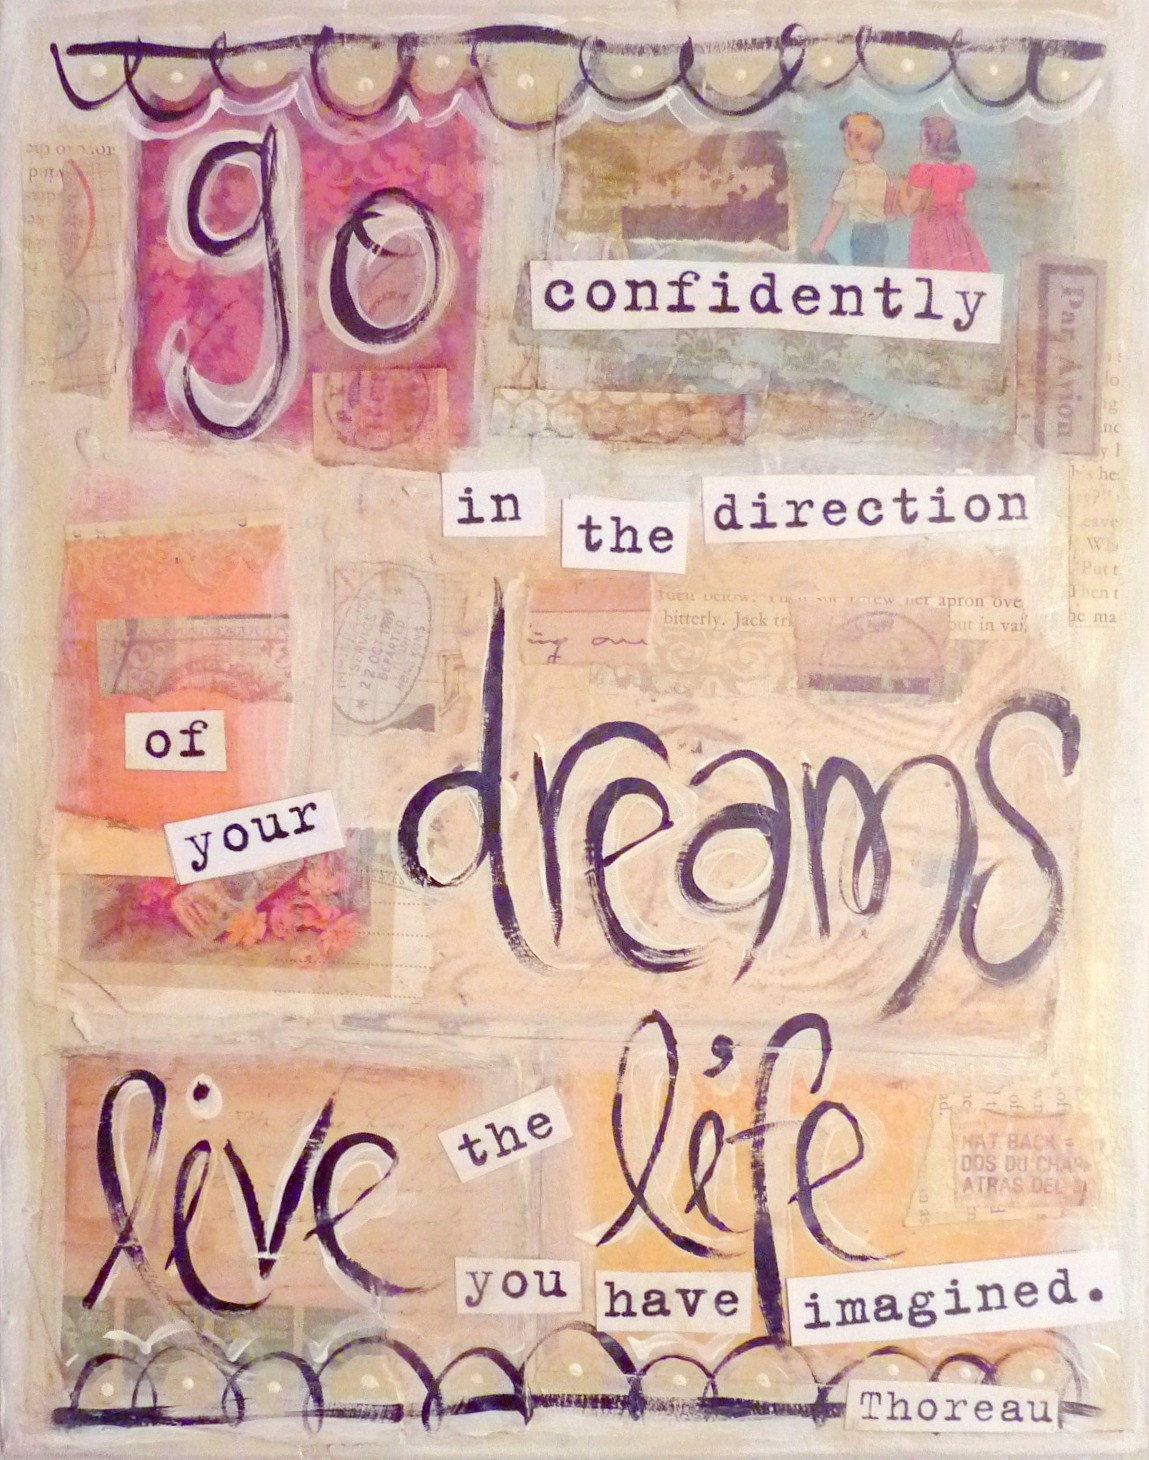 go
confidently
in the direction
of
your
dreams
live the life
you have imagined.
Thoreau
Par Avion
bitterly. Jack
her apron
22 OCT
DEPARTED